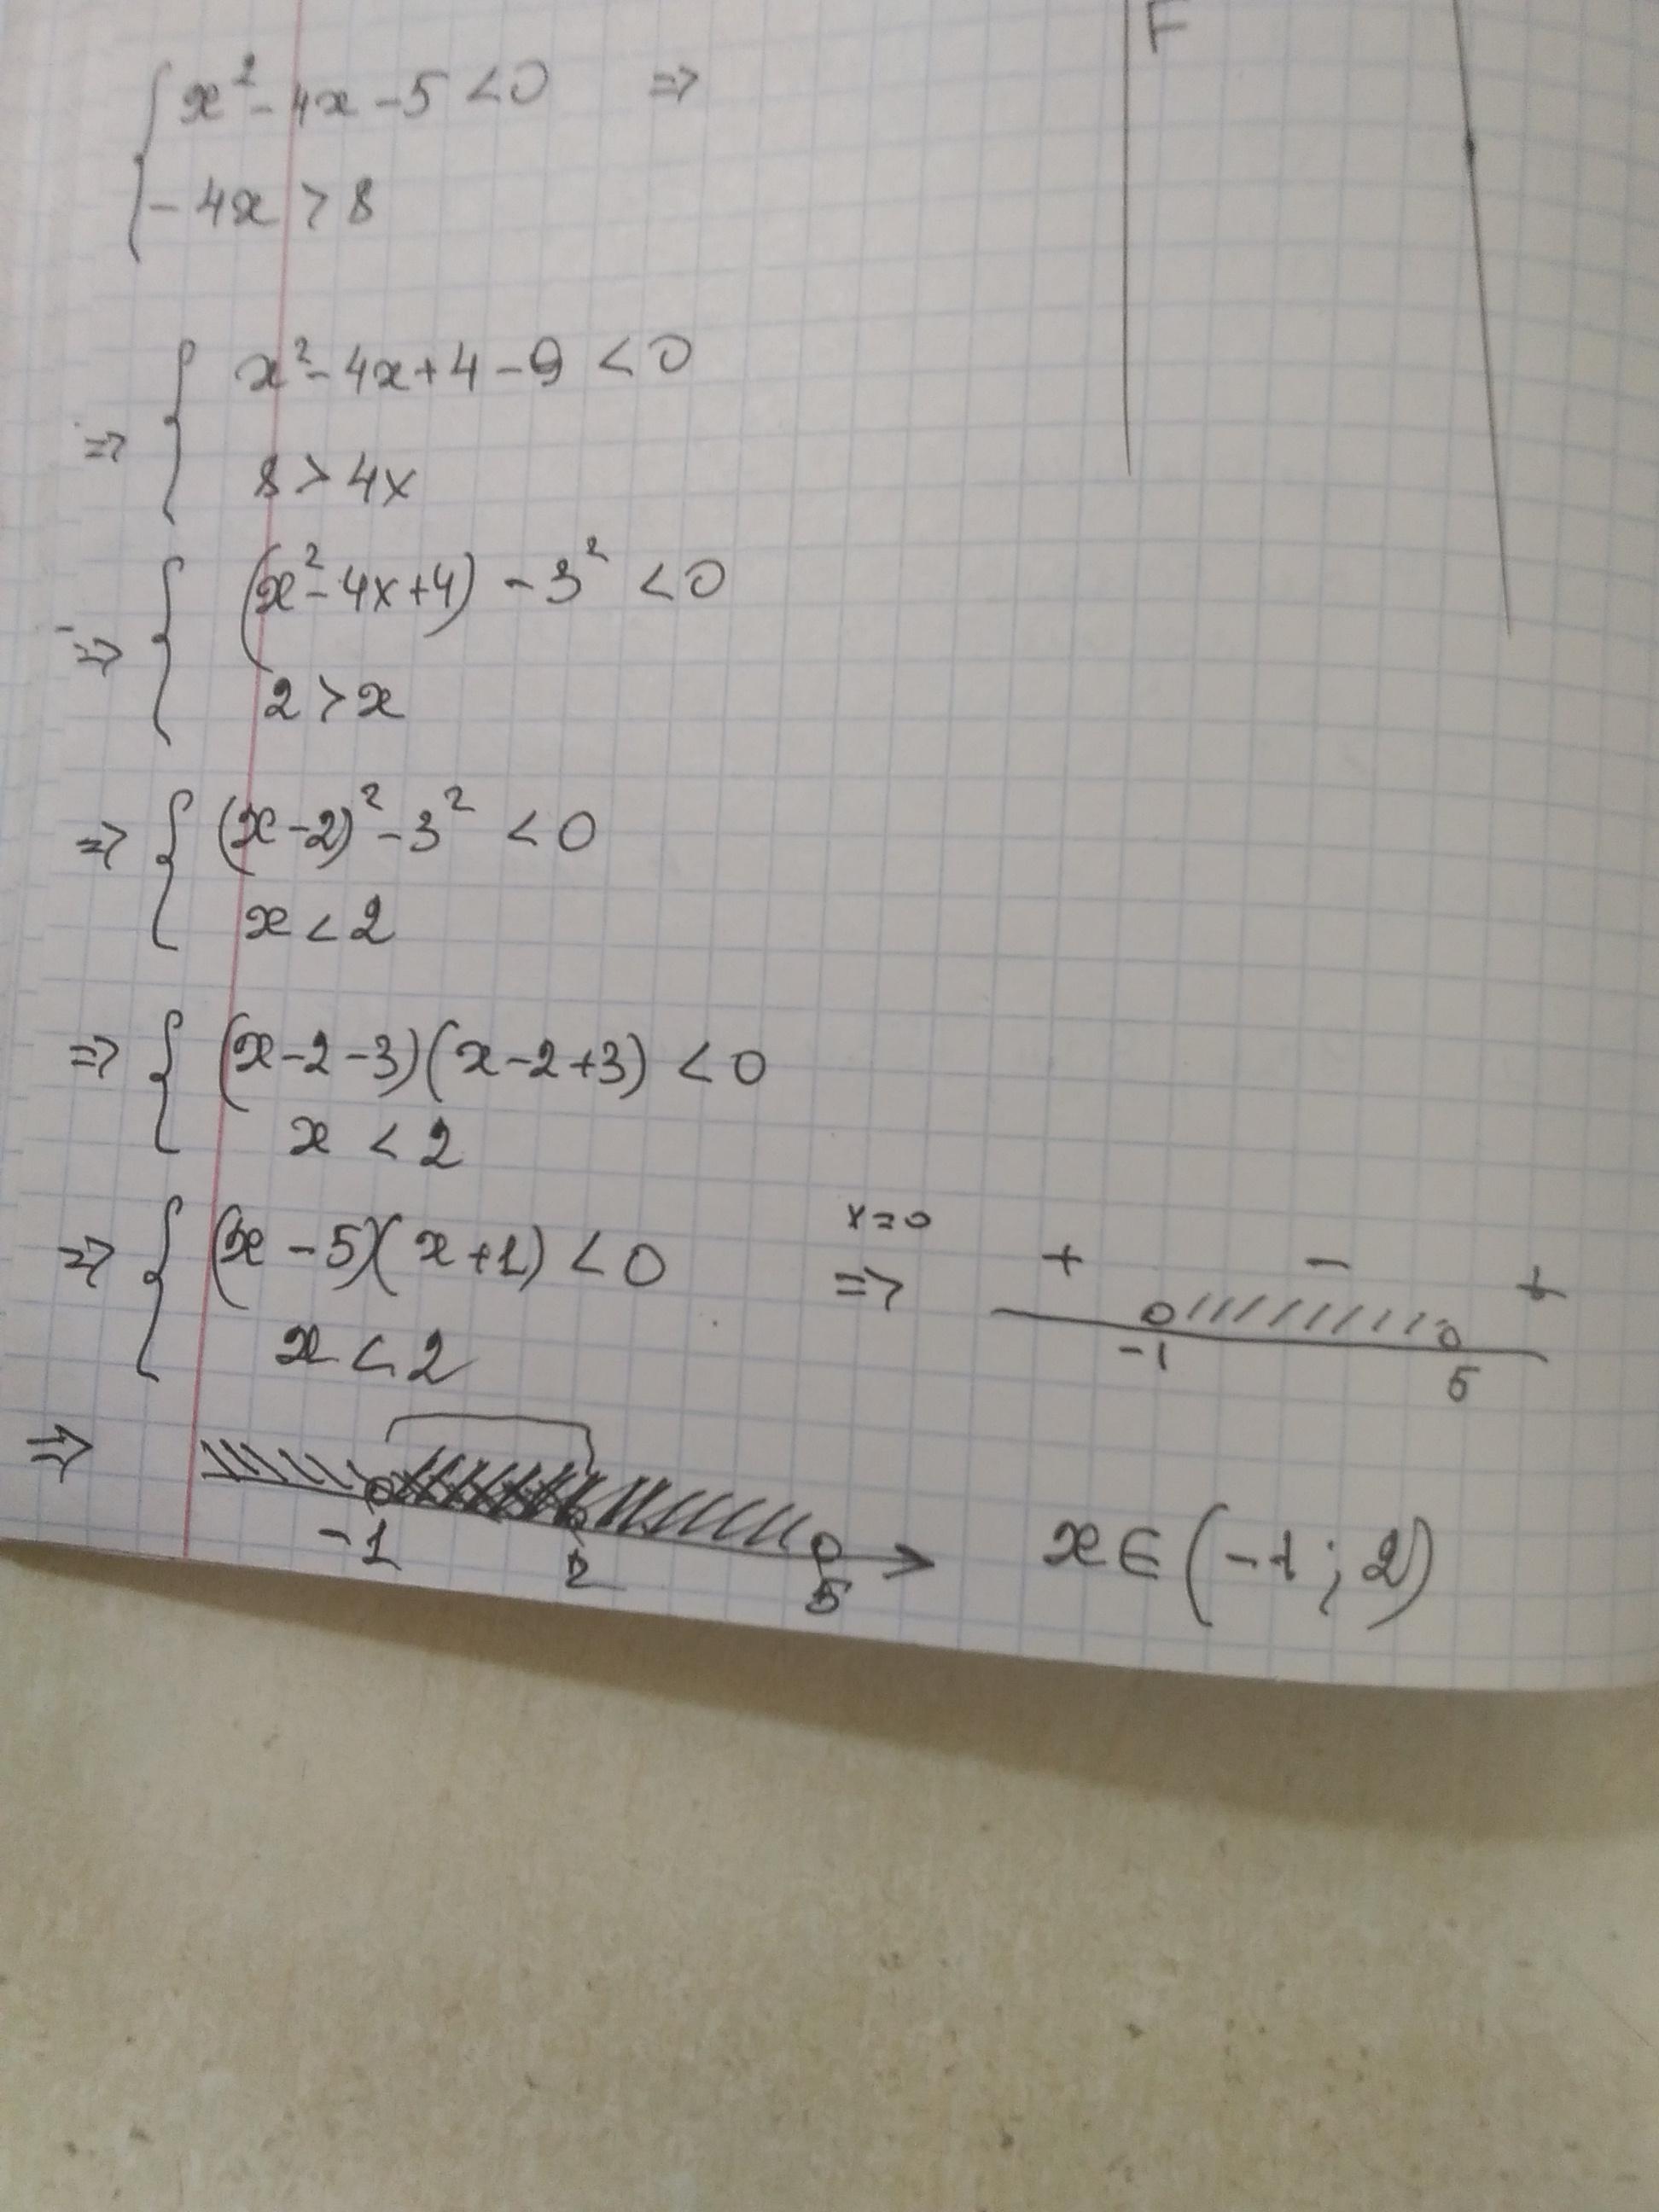 F
x² - 4x - 5 < 0 =>
- 4x > 8
=> x² - 4x + 4 - 9 < 0
8 > 4x
=> (x² - 4x + 4) - 3² < 0
2 > x
=> (x - 2)² - 3² < 0
x < 2
=> (x - 2 - 3)(x - 2 + 3) < 0
x < 2
=> (x - 5)(x + 1) < 0
x < 2
x = 0
=>
+ - +
-1 5
=>
-1 2 5
x ∈ (-1; 2)